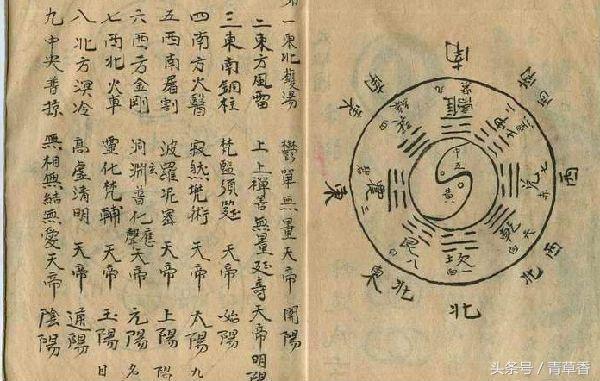 第一東北鑊湯 鬱單無量天帝 開陽
二東方風雷 上上禪善無量延壽天帝 明陽
三東南銅柱 梵監須筵 天帝 始陽
四南方火醫 寂然 術 天帝 太陽 九
五西南屠割 波羅尼蜜 天帝 上陽
六西方金剛 洞淵普化應聲天帝 元陽 名
七西北火車 靈化梵輔 天帝 玉陽 日
八北方溟冷 高虛清明 天帝 通陽
九中央普掠 無相無結無愛天帝 陰陽
南
西南
西
西北
北
東北
東
東南
離 九
兌 七
乾 六
坎 一
艮 八
震 三
头条号 / 青草香